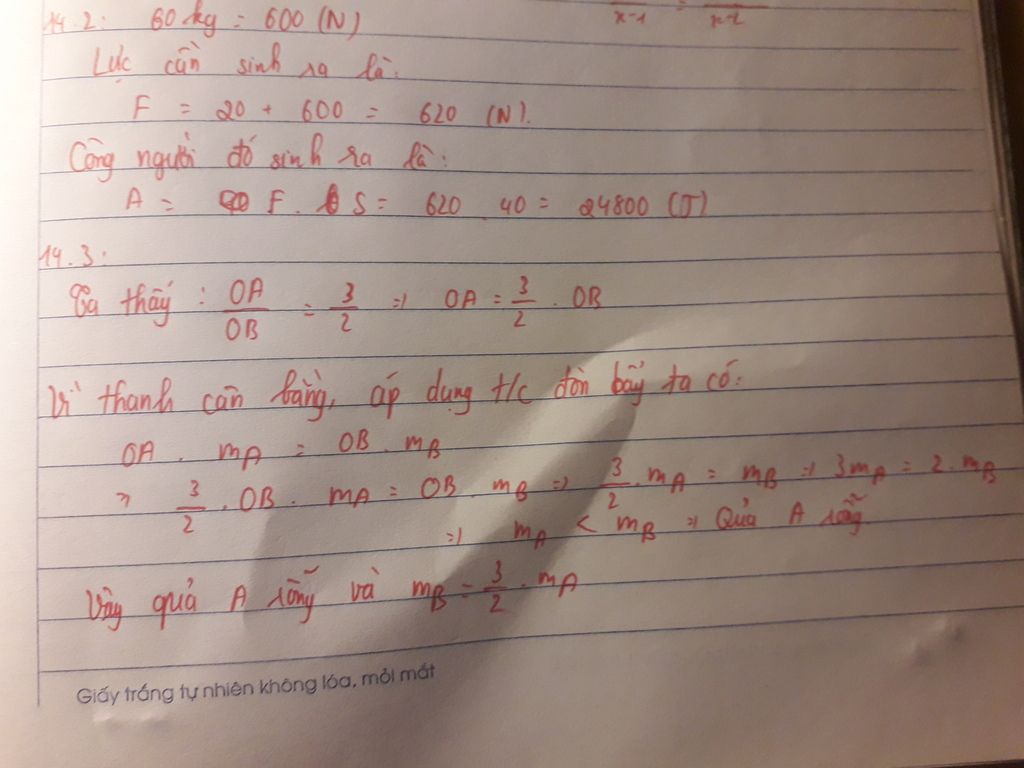 14.2: 60 kg = 600 (N)
x-1 =
Lực cần sinh ra là:
F = 20 + 600 = 620 (N).
Công người đó sinh ra là:
A = F. S = 620 40 = 24800 (J)
14.3:
Ta thấy: OA/OB = 3/2 => OA = 3/2 . OB
Vì thanh cân bằng, áp dụng t/c đòn bẩy ta có:
OA . mA = OB . mB
=> 3/2 . OB . mA = OB . mB => 3/2 . mA = mB => 3mA = 2 . mB
=> mA < mB => Quả A rỗng
Vậy quả A rỗng và mB = 3/2 . mA
Giấy trắng tự nhiên không lóa, mỏi mắt